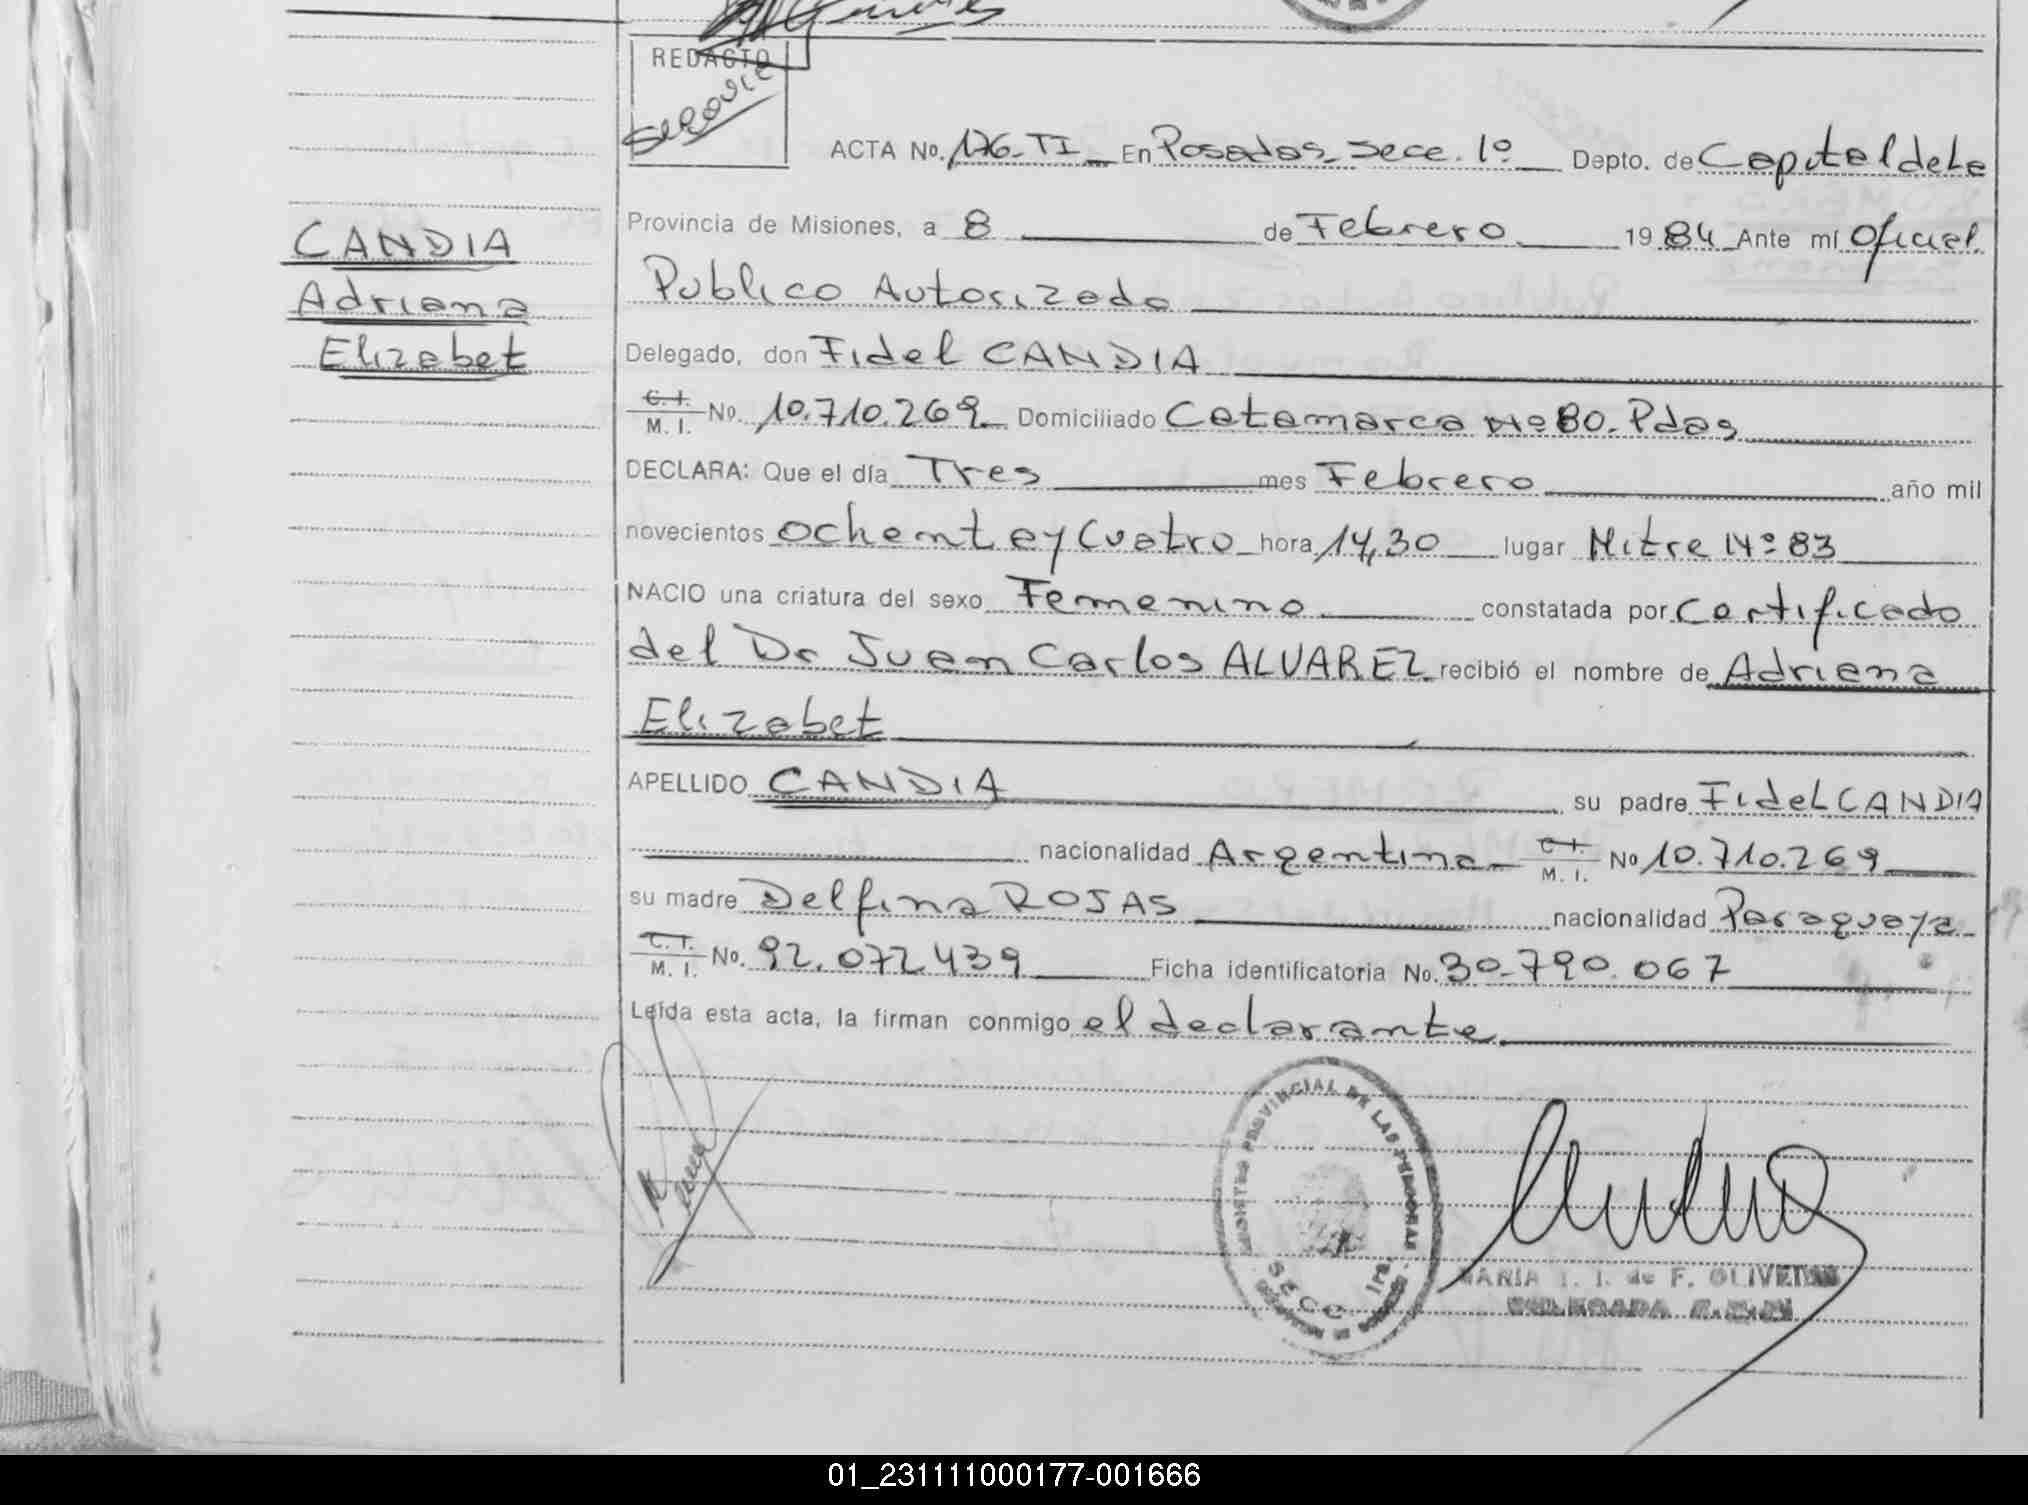 REDACTO
Segovia
ACTA No. 176-TI En Posadas Secc. 1º Depto. de Capital de la
Provincia de Misiones, a 8 de Febrero 1984 Ante mí Oficial
Publico Autorizado
CANDIA
Adriana
Elizabet
Delegado, don Fidel CANDIA
C. I.
M. I. No. 10.710.269 Domiciliado Catamarca Nº 80. Pdas
DECLARA: Que el día Tres mes Febrero año mil
novecientos ochent ay Cuatro hora 14,30 lugar Mitre Nº 83
NACIO una criatura del sexo Femenino constatada por Certificado
del Dr Juan Carlos ALVAREZ recibió el nombre de Adriana
Elizabet
APELLIDO CANDIA su padre Fidel CANDIA
nacionalidad Argentina C. I. M. I. No 10.710.269
su madre Delfina ROJAS nacionalidad Paraguaya
C. I.
M. I. No. 92.072.439 Ficha identificatoria No. 30-790.067
Leída esta acta, la firman conmigo el declarante
PROVINCIAL DE LAS PERSONAS
SECC. 1ra.
MARIA I. I. de F. OLIVETTI
DELEGADA
01_231111000177-001666